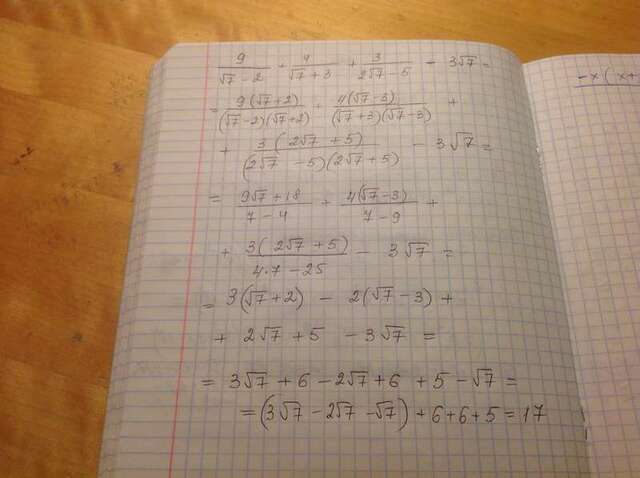 9/(√7 - 2) + 4/(√7 + 3) + 3/(2√7 - 5) - 3√7 =
= 9(√7 + 2)/((√7 - 2)(√7 + 2)) + 4(√7 - 3)/((√7 + 3)(√7 - 3)) +
+ 3(2√7 + 5)/((2√7 - 5)(2√7 + 5)) - 3√7 =
= (9√7 + 18)/(7 - 4) + 4(√7 - 3)/(7 - 9) +
+ 3(2√7 + 5)/(4·7 - 25) - 3√7 =
= 3(√7 + 2) - 2(√7 - 3) +
+ 2√7 + 5 - 3√7 =
= 3√7 + 6 - 2√7 + 6 + 5 - √7 =
= (3√7 - 2√7 - √7) + 6 + 6 + 5 = 17
-x(x+